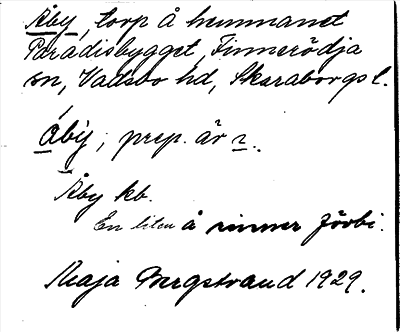 Åby, torp å hemmanet
Paradisbygget, Finnerödja
sn, Vadsbo hd, Skaraborgs l.
åby, prep. är i.
Åby kb.
En liten å rinner förbi.
Maja Bergstrand 1929.